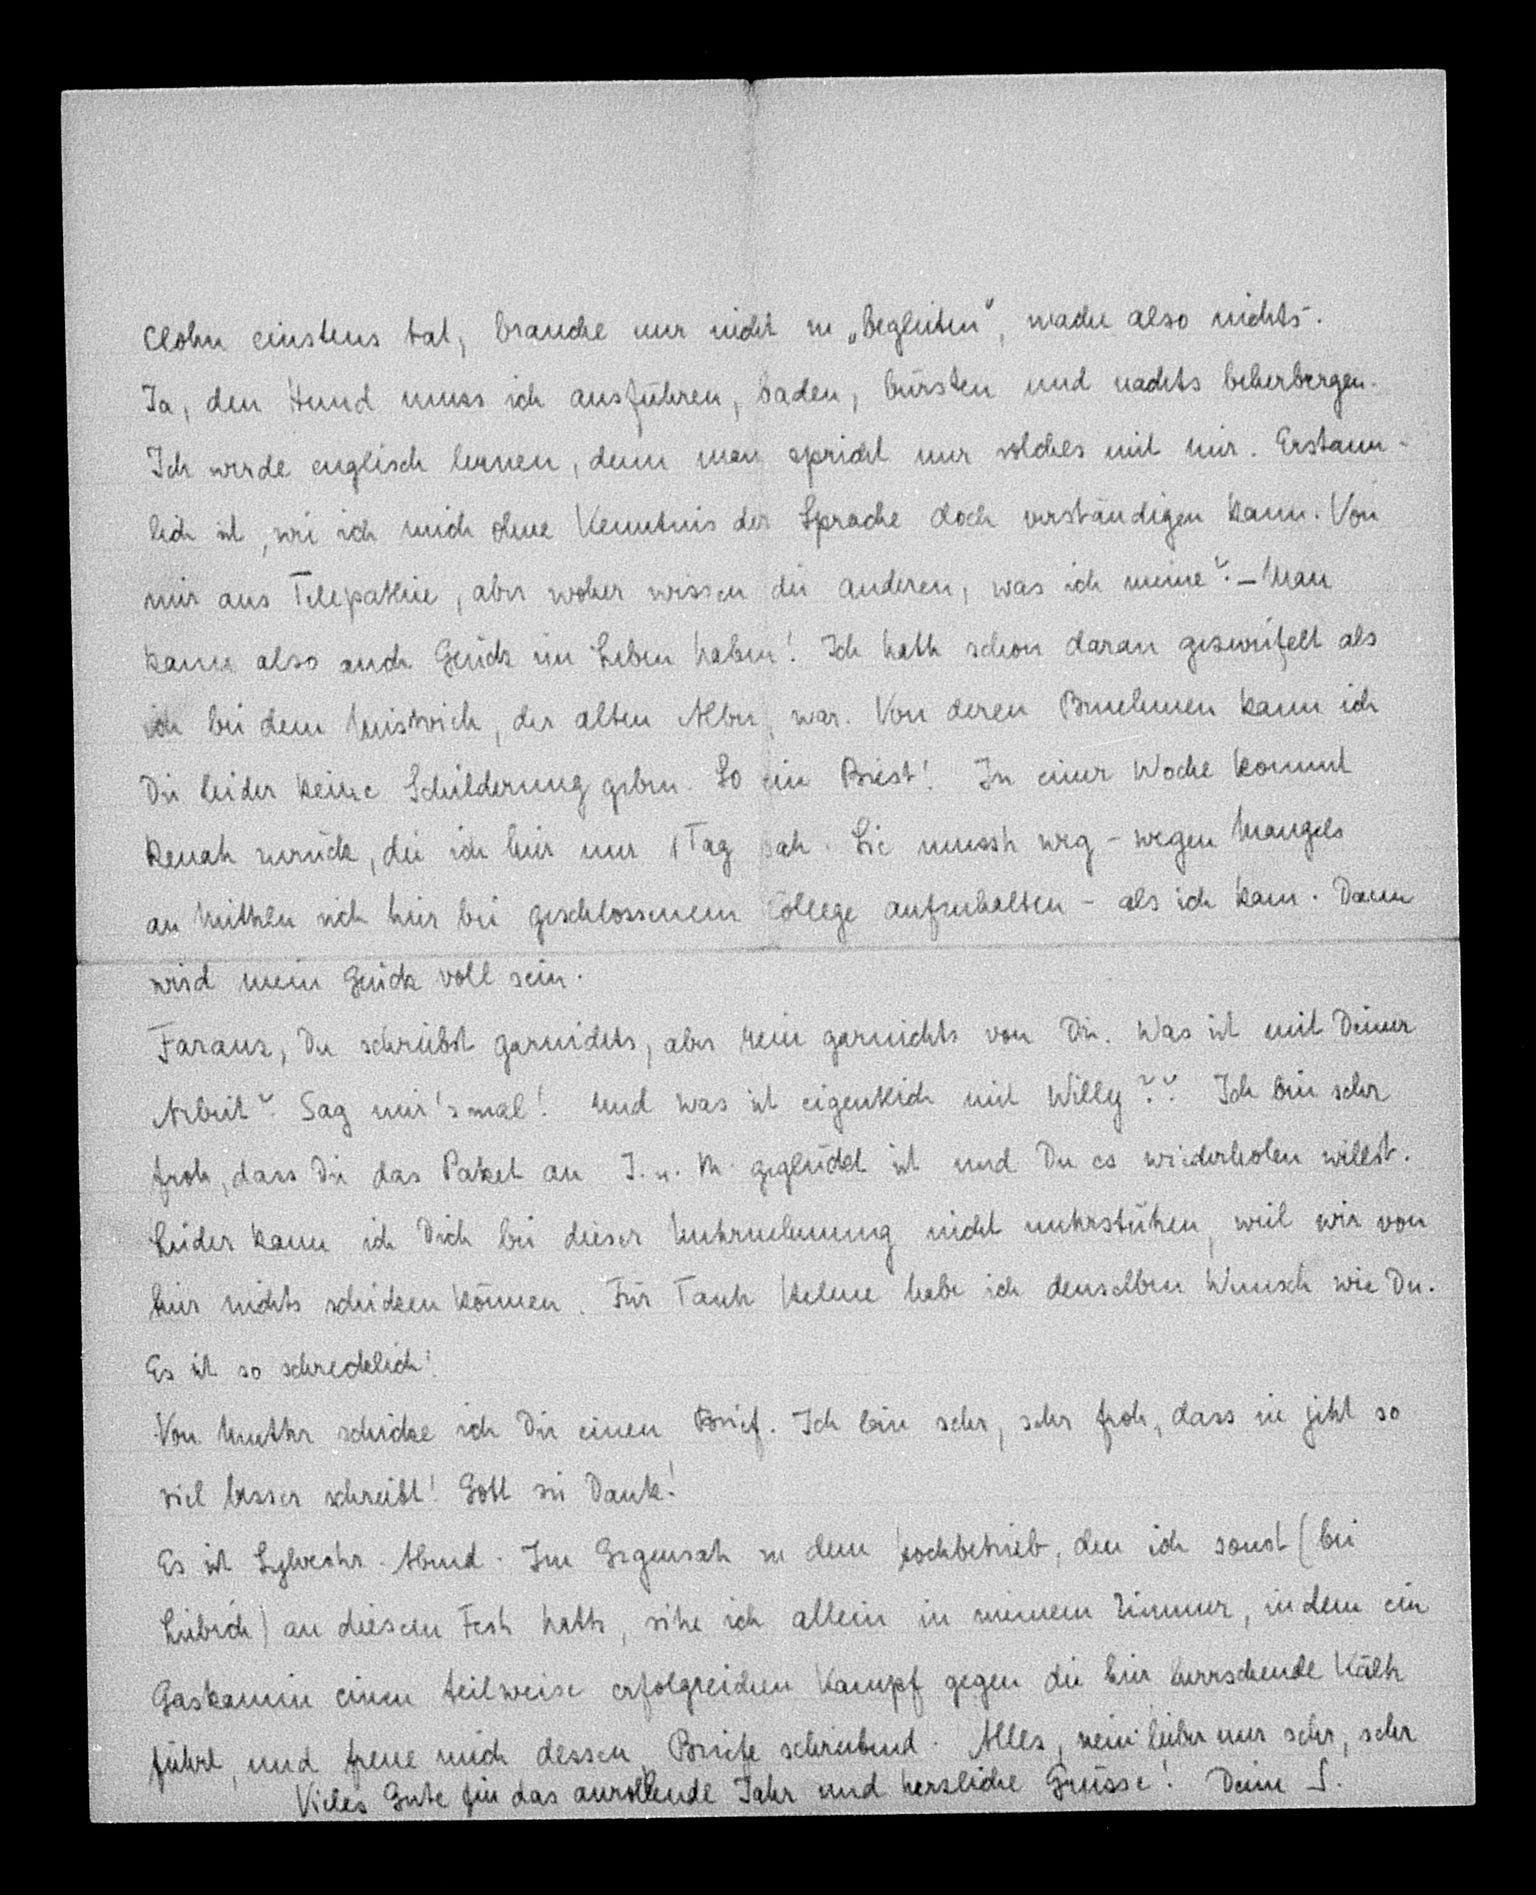 Clohn einstens tat, brauche nur nicht zu „begleiten", mache also nichts.
Ja, den Hund muss ich ausführen, baden, bürsten und nachts beherbergen.
Ich werde englisch lernen, denn man spricht nur solches mit mir. Erstaun-
lich ist, wie ich mich ohne Kenntnis der Sprache doch verständigen kann. Von
mir aus Telepathie, aber woher wissen die anderen, was ich meine? – Man
kann also auch Glück im Leben haben! Ich hatte schon daran gezweifelt als
ich bei dem Mistvieh, der alten Alber, war. Von deren Benehmen kann ich
Dir leider keine Schilderung geben. So ein Biest! In einer Woche kommt
Renate zurück, die ich hier nur 1 Tag sah. Sie musste weg – wegen Mangels
an Mitteln sich hier bei geschlossenem College aufzuhalten – als ich kam. Dann
wird mein Glück voll sein.
Du schreibst garnichts, aber rein garnichts von Dir. Was ist mit Deiner
Arbeit? Sag mir's mal! Und was ist eigentlich mit Willy?? Ich bin sehr
froh, dass Dir das Paket an I. u. M. geglückt ist und Du es wiederholen willst.
Leider kann ich Dich bei dieser Unternehmung nicht unterstützen, weil wir von
hier nichts schicken können. Für Tante Helene habe ich denselben Wunsch wie Du.
Es ist so schrecklich!
Von Mutter schicke ich Dir einen Brief. Ich bin sehr, sehr froh, dass sie jetzt so
viel besser schreibt! Gott sei Dank!
Es ist Sylvester-Abend. Im Gegensatz zu dem Hochbetrieb, den ich sonst (bei
Liebich) an diesem Fest hatte, sitze ich allein in meinem Zimmer, in dem ein
Gaskamin einen teilweise erfolgreichen Kampf gegen die hier herrschende Kälte
führt, und freue mich dessen, Briefe schreibend. Alles, nein lieber nur sehr, sehr
Vieles Gute für das anrollende Jahr und herzliche Grüsse! Deine S.